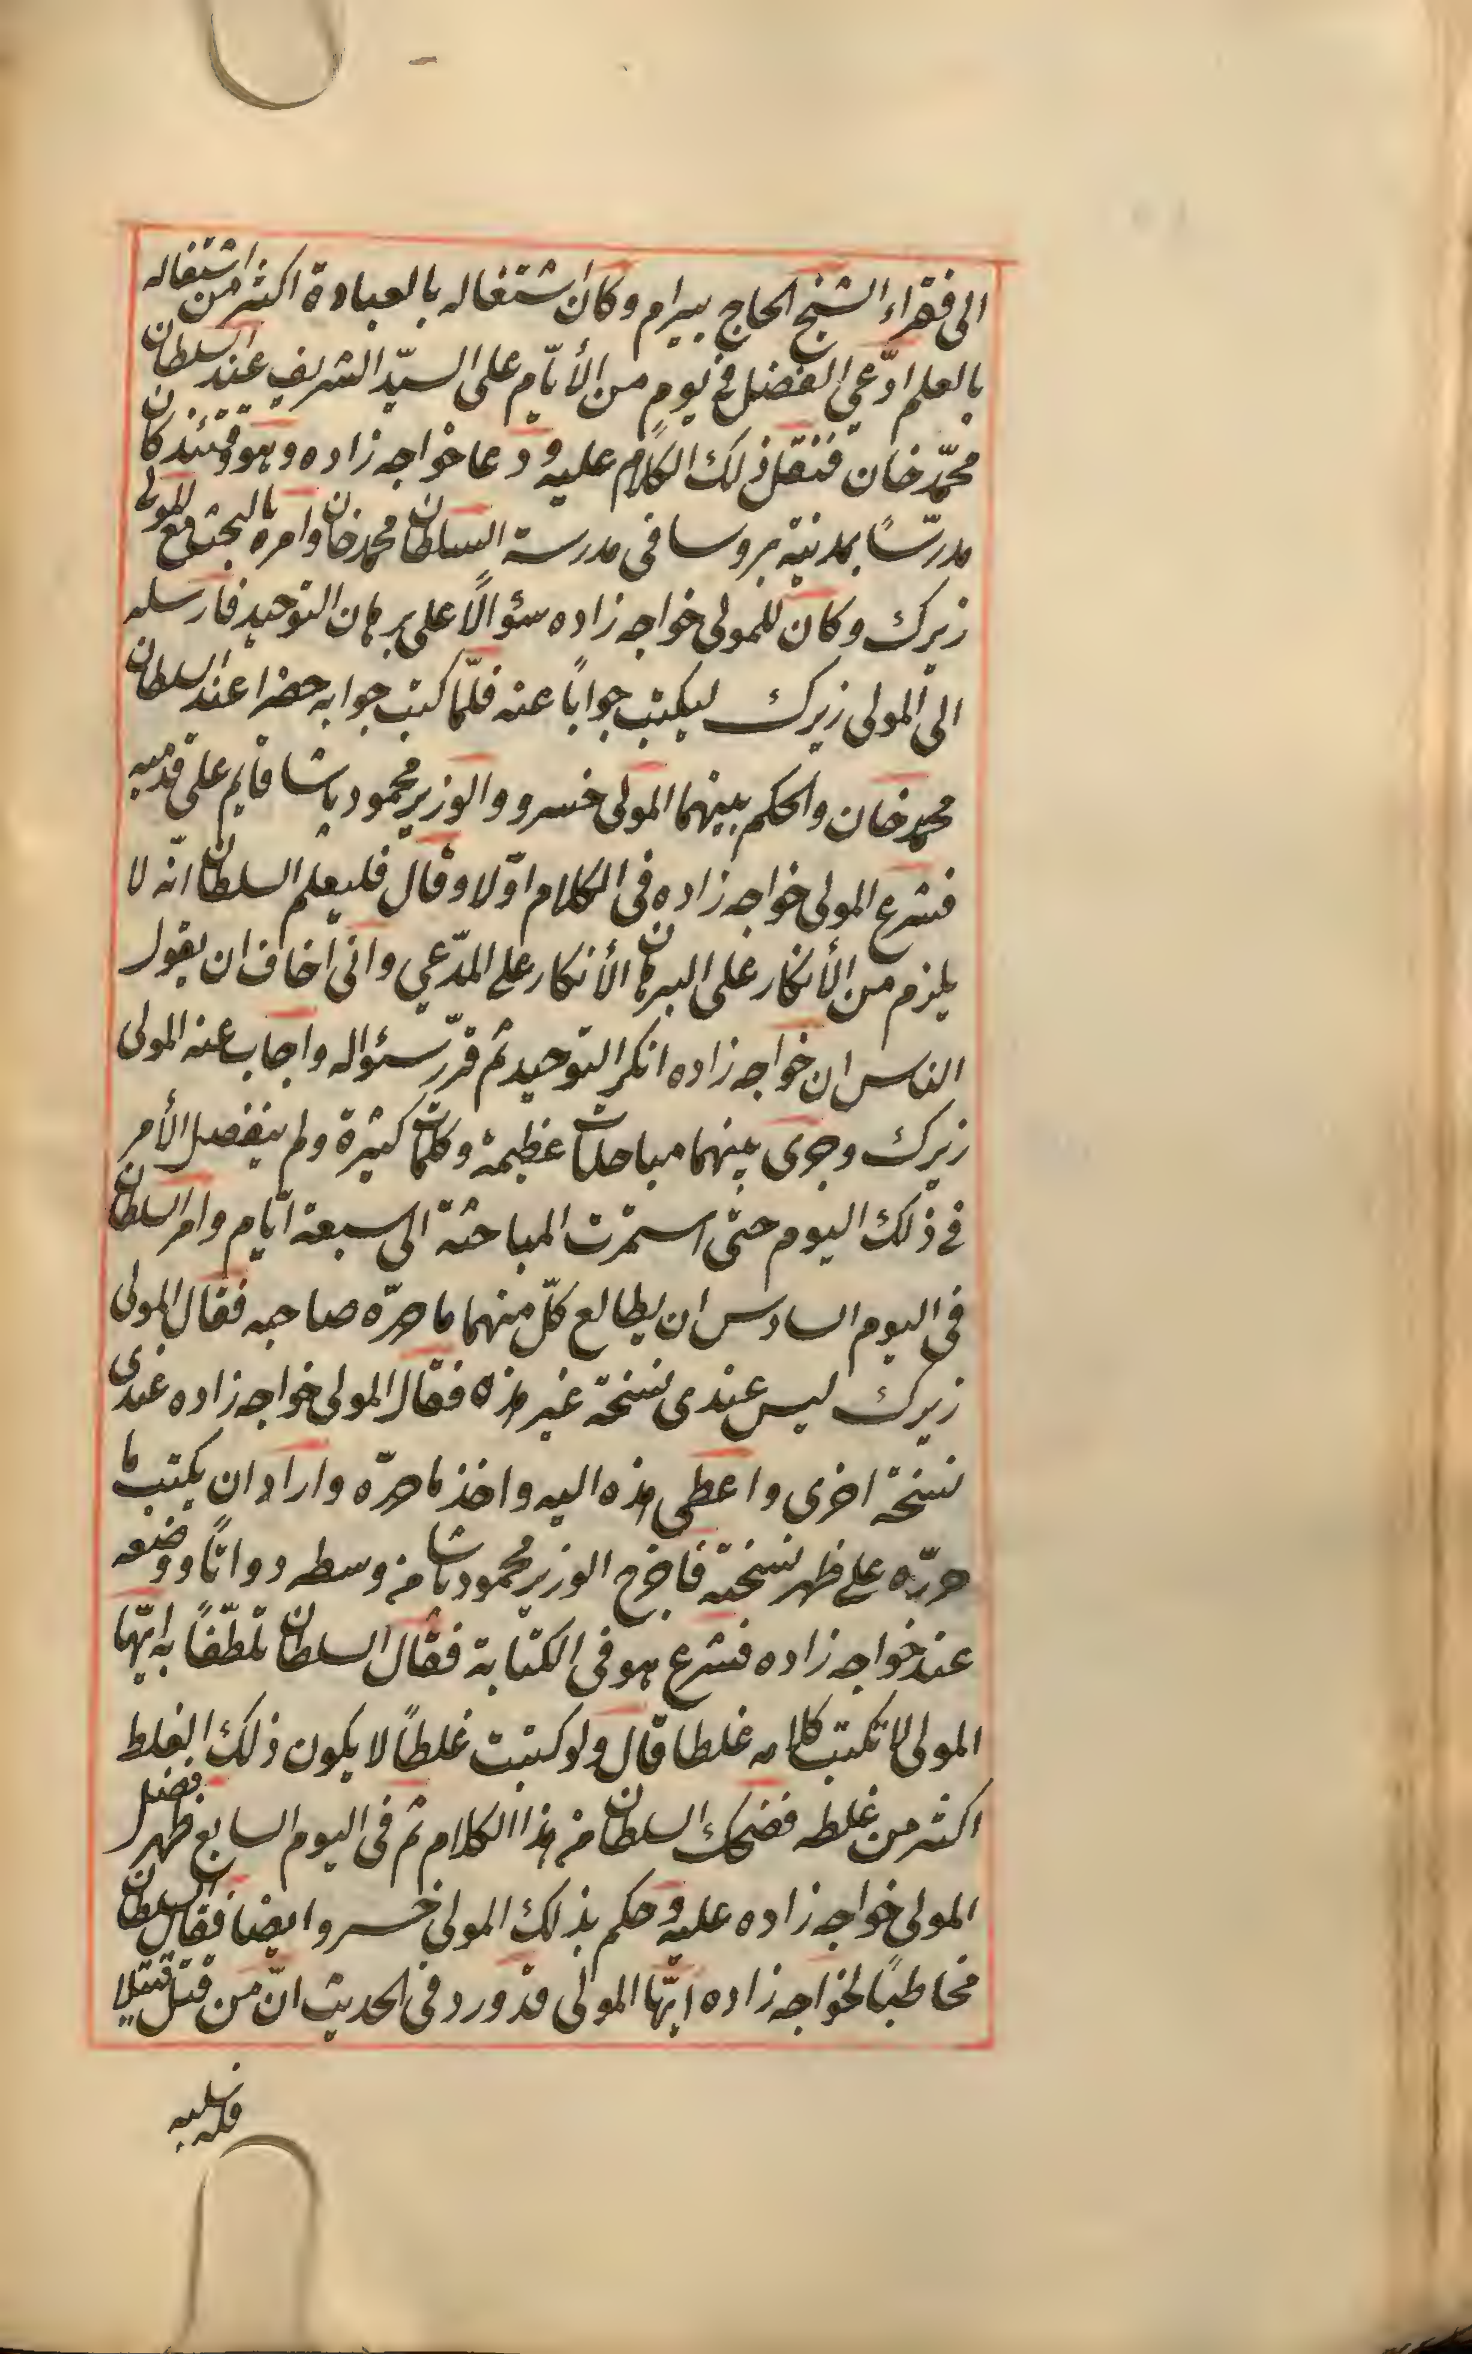 الى فقراء الشيخ الحاج بيرام وكان اشتغاله بالعبادة اكثر من اشتغاله
بالعلم ادّعي الفضل في يوم من الأيّام على السيّد الشريف عند السلطان
محمّد خان فنقل ذلك الكلام عليه ودعا خواجه زاده وهو وقتئذ كان
مدرّسًا بمدنية بروسا في مدرسة السلطان محمد خان وامره بالبحث مع المولى
زيرك وكان للمولى خواجه زاده سؤالًا على برهان التوحيد فارسله
الى المولى زيرك ليكتب جوابًا عنه فلمّا كتب جوابه حضرا عند السلطان
محمد خان والحكم بينهما المولى خسرو والوزير محمود پاشا قايم على قدميه
فشرع المولى خواجه زاده في الكلام اوّلا وقال فليعلم السلطان انّه لا
يلزم من الأنكار على البرهان الأنكار على المدّعي واني اخاف ان يقول
الناس ان خواجه زاده انكر التوحيد ثم قرّر سئواله واجاب عنه المولى
زيرك وجرى بينهما مباحثات عظيمة وكلمات كثيرة ولم ينفصل الأمر
في ذلك اليوم حتى استمرّت المباحثة الى سبعة ايّام وامر السلطان
في اليوم السادس ان يطالع كلّ منهما ما حرّره صاحبه فقال المولى
زيرك ليس عندى نسخة غير هذه فقال المولى خواجه زاده عندى
نسخة اخرى واعطى هذه اليه واخذ ما حرّره واراد ان يكتب ما
حرّره على ظهر نسخته فاخرج الوزير محمود پاشا من وسطه دواتًا ووضعه
عند خواجه زاده فشرع هو في الكتابة فقال السلطان تلطّفًا به ايّها
المولى لا تكتب كلامه غلطا قال ولو كتبت غلطًا لا يكون ذلك الغلط
اكثر من غلطه فضحك السلطان من هذا الكلام ثم في اليوم السابع ظهر فضل
المولى خواجه زاده عليه وحكم بذلك المولى خسرو ايضا فقال السلطان
مخاطبًا لخواجه زاده ايّها المولى قد ورد في الحديث انّ من قتل قتيلا
فله سلبه